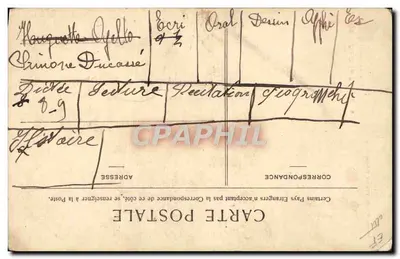 Ecri Oral Dessin
Ducassé
Dictée Lecture Récitation Géographie
8-9
Histoire
CARTE POSTALE
Certains Pays Etrangers n'acceptant pas la Correspondance de ce côté, se renseigner à la Poste.
CORRESPONDANCE
ADRESSE
CPAPHIL.COM